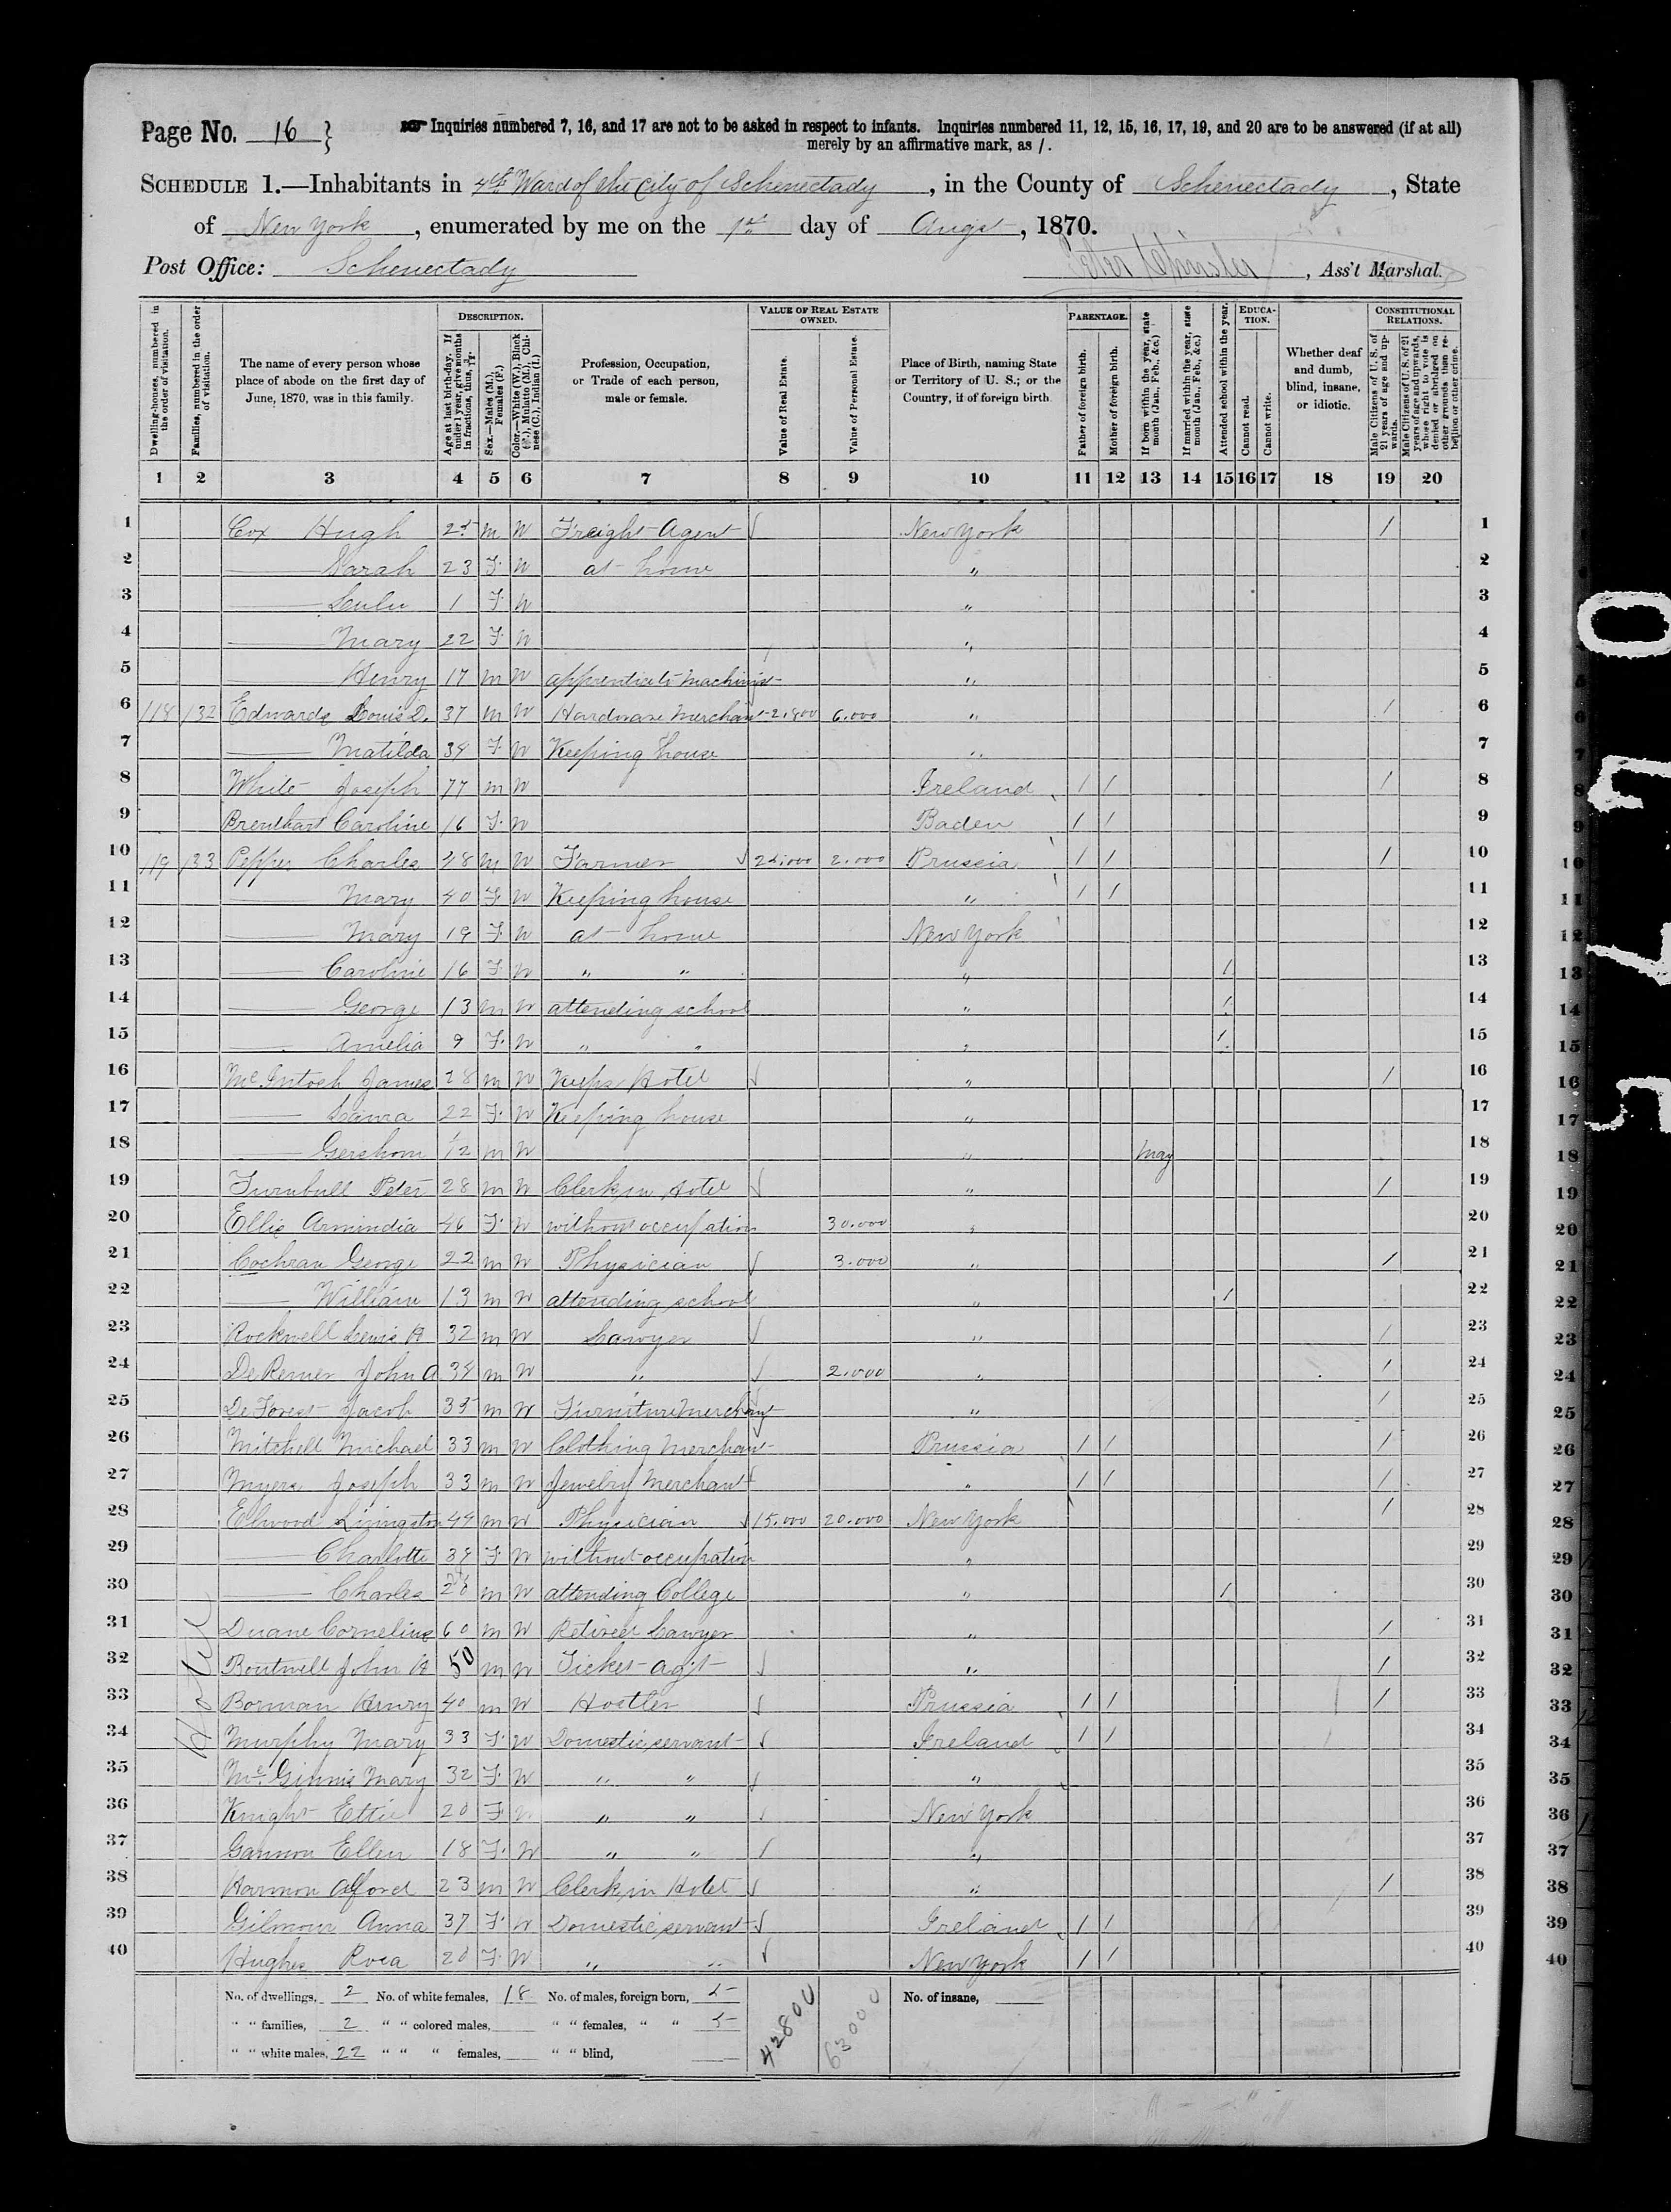 Page No. 16 } Inquiries numbered 7, 16, and 17 are not to be asked in respect to infants. Inquiries numbered 11, 12, 15, 16, 17, 19, and 20 are to be answered (if at all)
merely by an affirmative mark, as /.
SCHEDULE 1.—Inhabitants in 4th Ward of the City of Schenectady, in the County of Schenectady, State
of New York, enumerated by me on the 1st day of Augst, 1870.
Post Office: Schenectady , Ass't Marshal.
DESCRIPTION. VALUE OF REAL ESTATE OWNED. PARENTAGE. EDUCATION. CONSTITUTIONAL RELATIONS.
Dwelling-houses, numbered in the order of visitation.
Families, numbered in the order of visitation.
The name of every person whose place of abode on the first day of June, 1870, was in this family.
Age at last birth-day. If under 1 year, give months in fractions, thus, 3/12
Sex.—Males (M.), Females (F.)
Color.—White (W.), Black (B.), Mulatto (M.), Chinese (C.), Indian (I.)
Profession, Occupation, or Trade of each person, male or female.
Value of Real Estate.
Value of Personal Estate.
Place of Birth, naming State or Territory of U. S.; or the Country, if of foreign birth.
Father of foreign birth.
Mother of foreign birth.
If born within the year, state month (Jan., Feb., &c.)
If married within the year, state month (Jan., Feb., &c.)
Attended school within the year.
Cannot read.
Cannot write.
Whether deaf and dumb, blind, insane, or idiotic.
Male Citizens of U. S. of 21 years of age and upwards.
Male Citizens of U. S. of 21 years of age and upwards, whose right to vote is denied or abridged on other grounds than rebellion or other crime.
1 2 3 4 5 6 7 8 9 10 11 12 13 14 15 16 17 18 19 20
1 Cox Hugh 25 m W Freight Agent √ New York / 1
2 —— Sarah 23 F. W at home " 2
3 —— Lulu 1 F. W " 3
4 —— Mary 22 F. W " 4
5 —— Henry 17 m W apprenticets Machinist " 5
6 118 132 Edwards Louis D. 37 m W Hardware Merchant 2,800 6.000 " / 6
7 —— Matilda 34 F. W Keeping house " 7
8 White Joseph 77 m W Ireland / / / 8
9 Caroline 16 F. W Baden / / 9
10 119 133 Pepper Charles 48 m W Farmer √ 25.000 2.000 Prussia / / / 10
11 —— Mary 40 F. W Keeping house " / / 11
12 —— Mary 19 F. W at home New York 12
13 —— Caroline 16 F. W " " " / 13
14 —— George 13 m W attending school " / 14
15 —— Amelia 9 F. W " " " / 15
16 McIntosh James 28 m W Keeps Hotel √ " / 16
17 —— Laura 22 F. W Keeping house " 17
18 —— Gershom 1/12 m W " May 18
19 Turnbull Peter 28 m W Clerk in Hotel √ " / 19
20 Ellis Armindia 46 F. W without occupation 30.000 " 20
21 Cochran George 22 m W Physician √ 3.000 " / 21
22 —— William 13 m W attending school " / 22
23 Rockwell Lewis H 32 m W Lawyer √ " / 23
24 DeRemer John A 34 m W " √ 2.000 " / 24
25 DeForest Jacob 35 m W Furniture Merchant " / 25
26 Mitchell Michael 33 m W Clothing Merchant Prussia / / / 26
27 Myers Joseph 33 m W Jewelry Merchant √ " / / / 27
28 Elwood Livingston 44 m W Physician √ 15.000 20.000 New York / 28
29 —— Charlotte 39 F. W without occupation " 29
30 —— Charles 20 m W attending College " / 30
31 Duane Cornelius 60 m W Retired Lawyer " / 31
32 Boutwell John H 50 m W Ticket Agt √ " / 32
33 Borman Henry 40 m W Hostler √ Prussia / / / 33
34 Murphy Mary 33 F. W Domestic servant √ Ireland / / 34
35 McGinnis Mary 32 F. W " " √ " 35
36 Knight Ettie 20 F. W " " √ New York 36
37 Gannon Ellen 18 F. W " " √ " 37
38 Harmon Alford 23 m W Clerk in Hotel √ " / 38
39 Gilmour Anna 37 F. W Domestic servant √ Ireland / / 39
40 Hughes Rosa 20 F. W " " √ New York / / 40
Hotel
No. of dwellings, 2 No. of white females, 18 No. of males, foreign born, 5 42800 63000 No. of insane,
" " families, 2 " " colored males, " " females, " " 5
" " white males, 22 " " " females, " " blind,